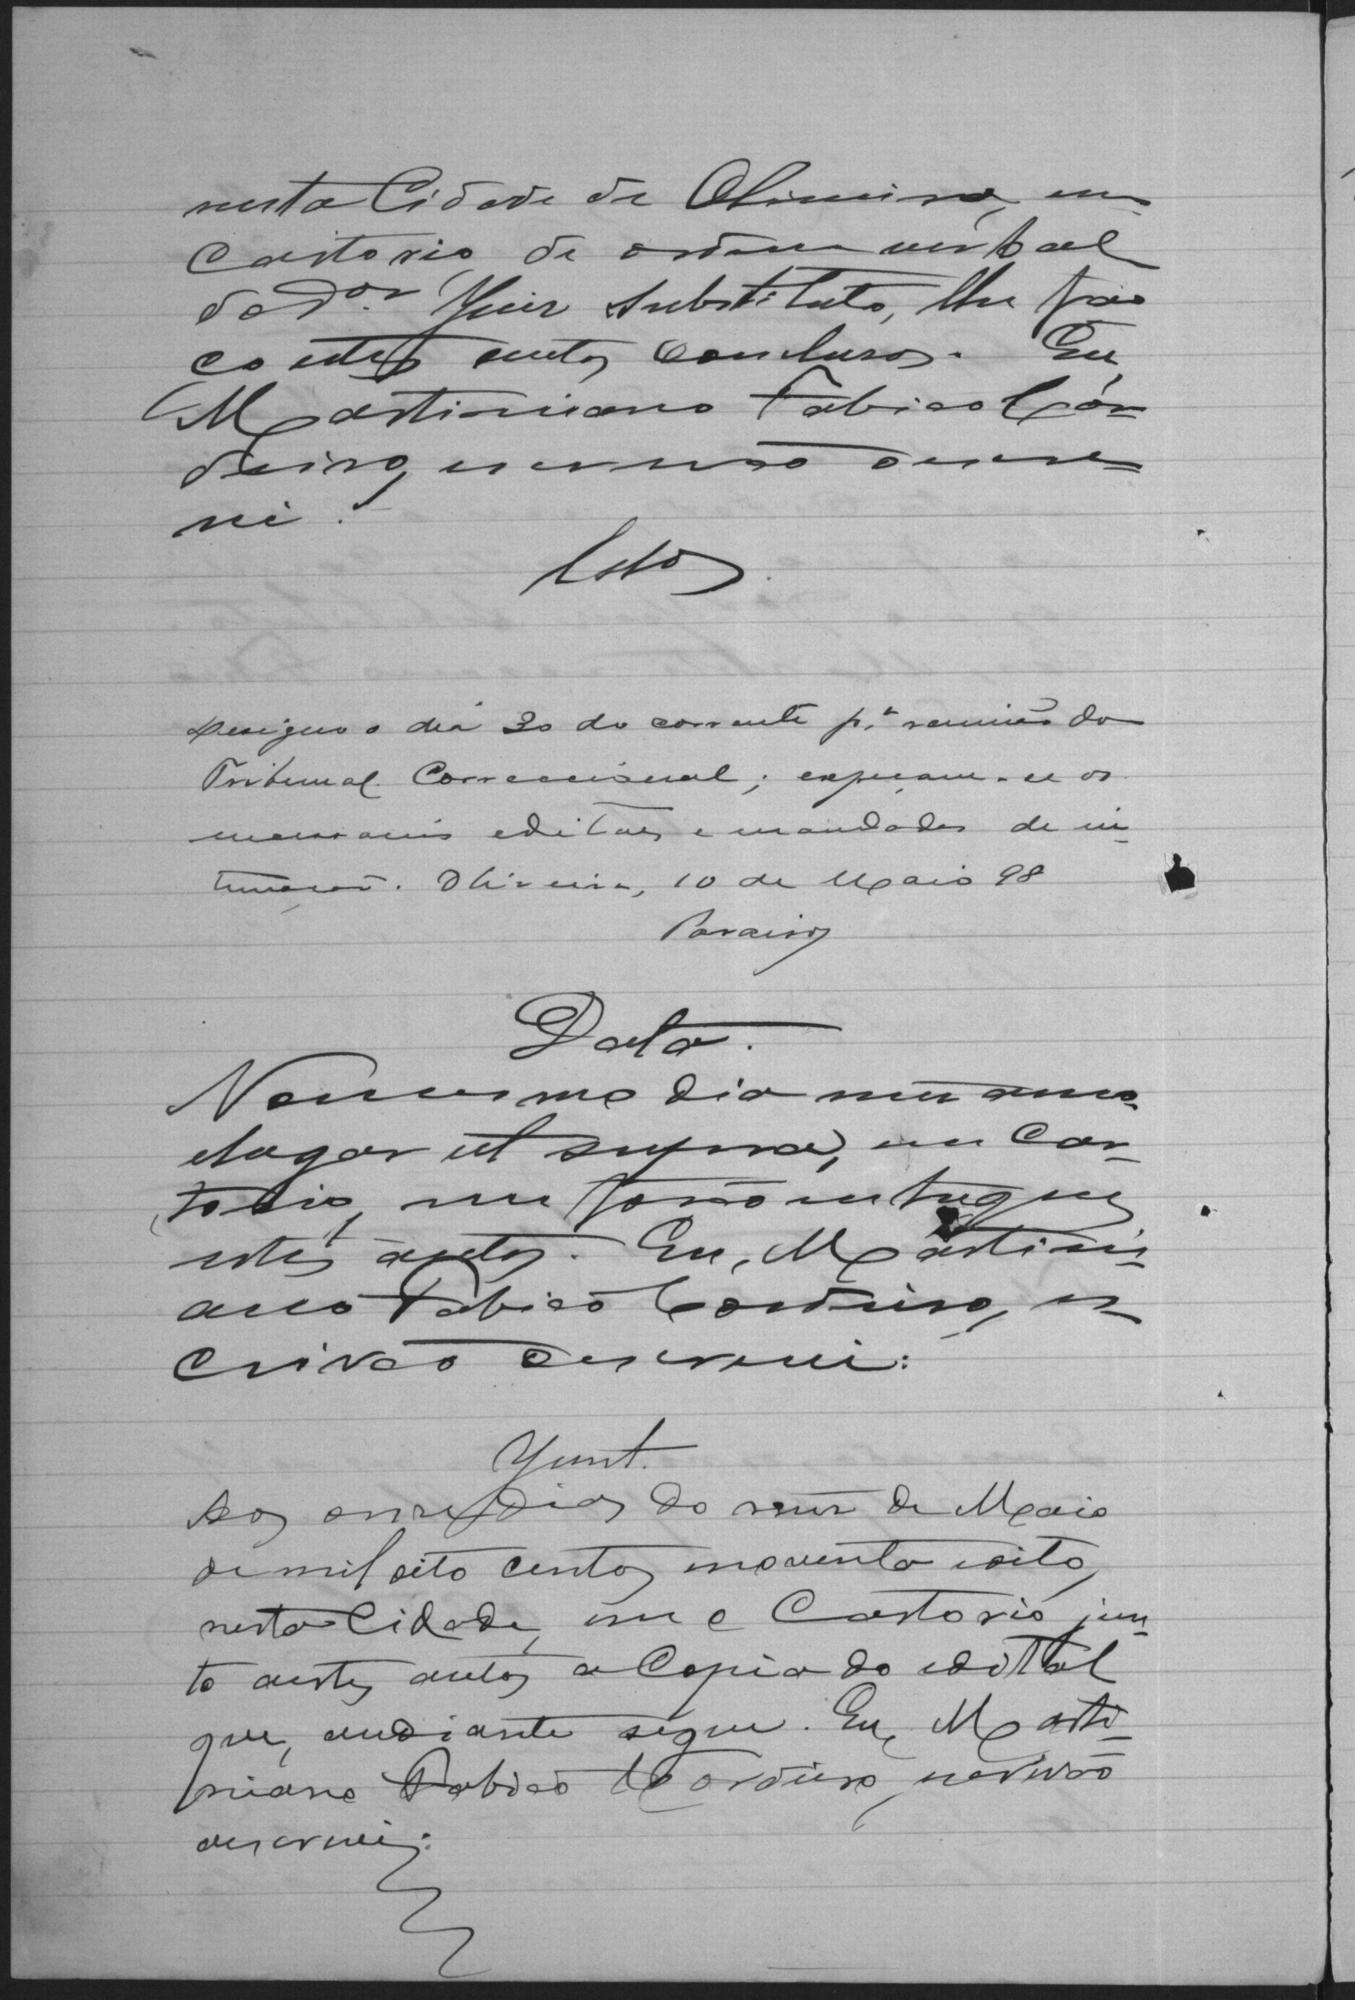 nesta Cidade de Oliveira, em
Cartorio, de ordem verbal
do Dor. Juiz Substituto, lhe fa-
ço estes autos conclusos. Eu,
Martiniano Fabião Cor-
deiro, escrivão o escre-
vi.
Clsos.
Designo o dia 30 do corrente pª. reunião do
Tribunal Correccional; expeçam-se os
necessarios editaes e mandados de in-
timação. Oliveira, 10 de Maio 98
Data.
No mesmo dia mez anno
e logar ut supra, em Car-
torio, me forão entregues
estes autos. Eu, Martini-
ano Fabião Cordeiro, es-
crivão o escrevi:
Junt.
Aos onze dias do mez de Maio
de mil oito centos noventa e oito,
nesta Cidade, em o Cartorio, jun-
to a estes autos a Copia do edital
que, ao diante segue. Eu, Marti-
niano Fabião Cordeiro, escrivão
o escrevi: